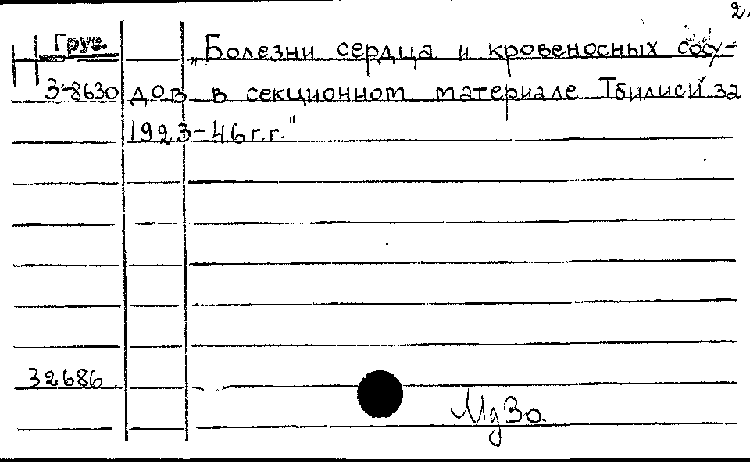 2.
Н Груз. „Болезни сердца и кровеносных сосу-
З-8630 дов в секционном материале Тбилиси за
1923-46 г.г."
32686